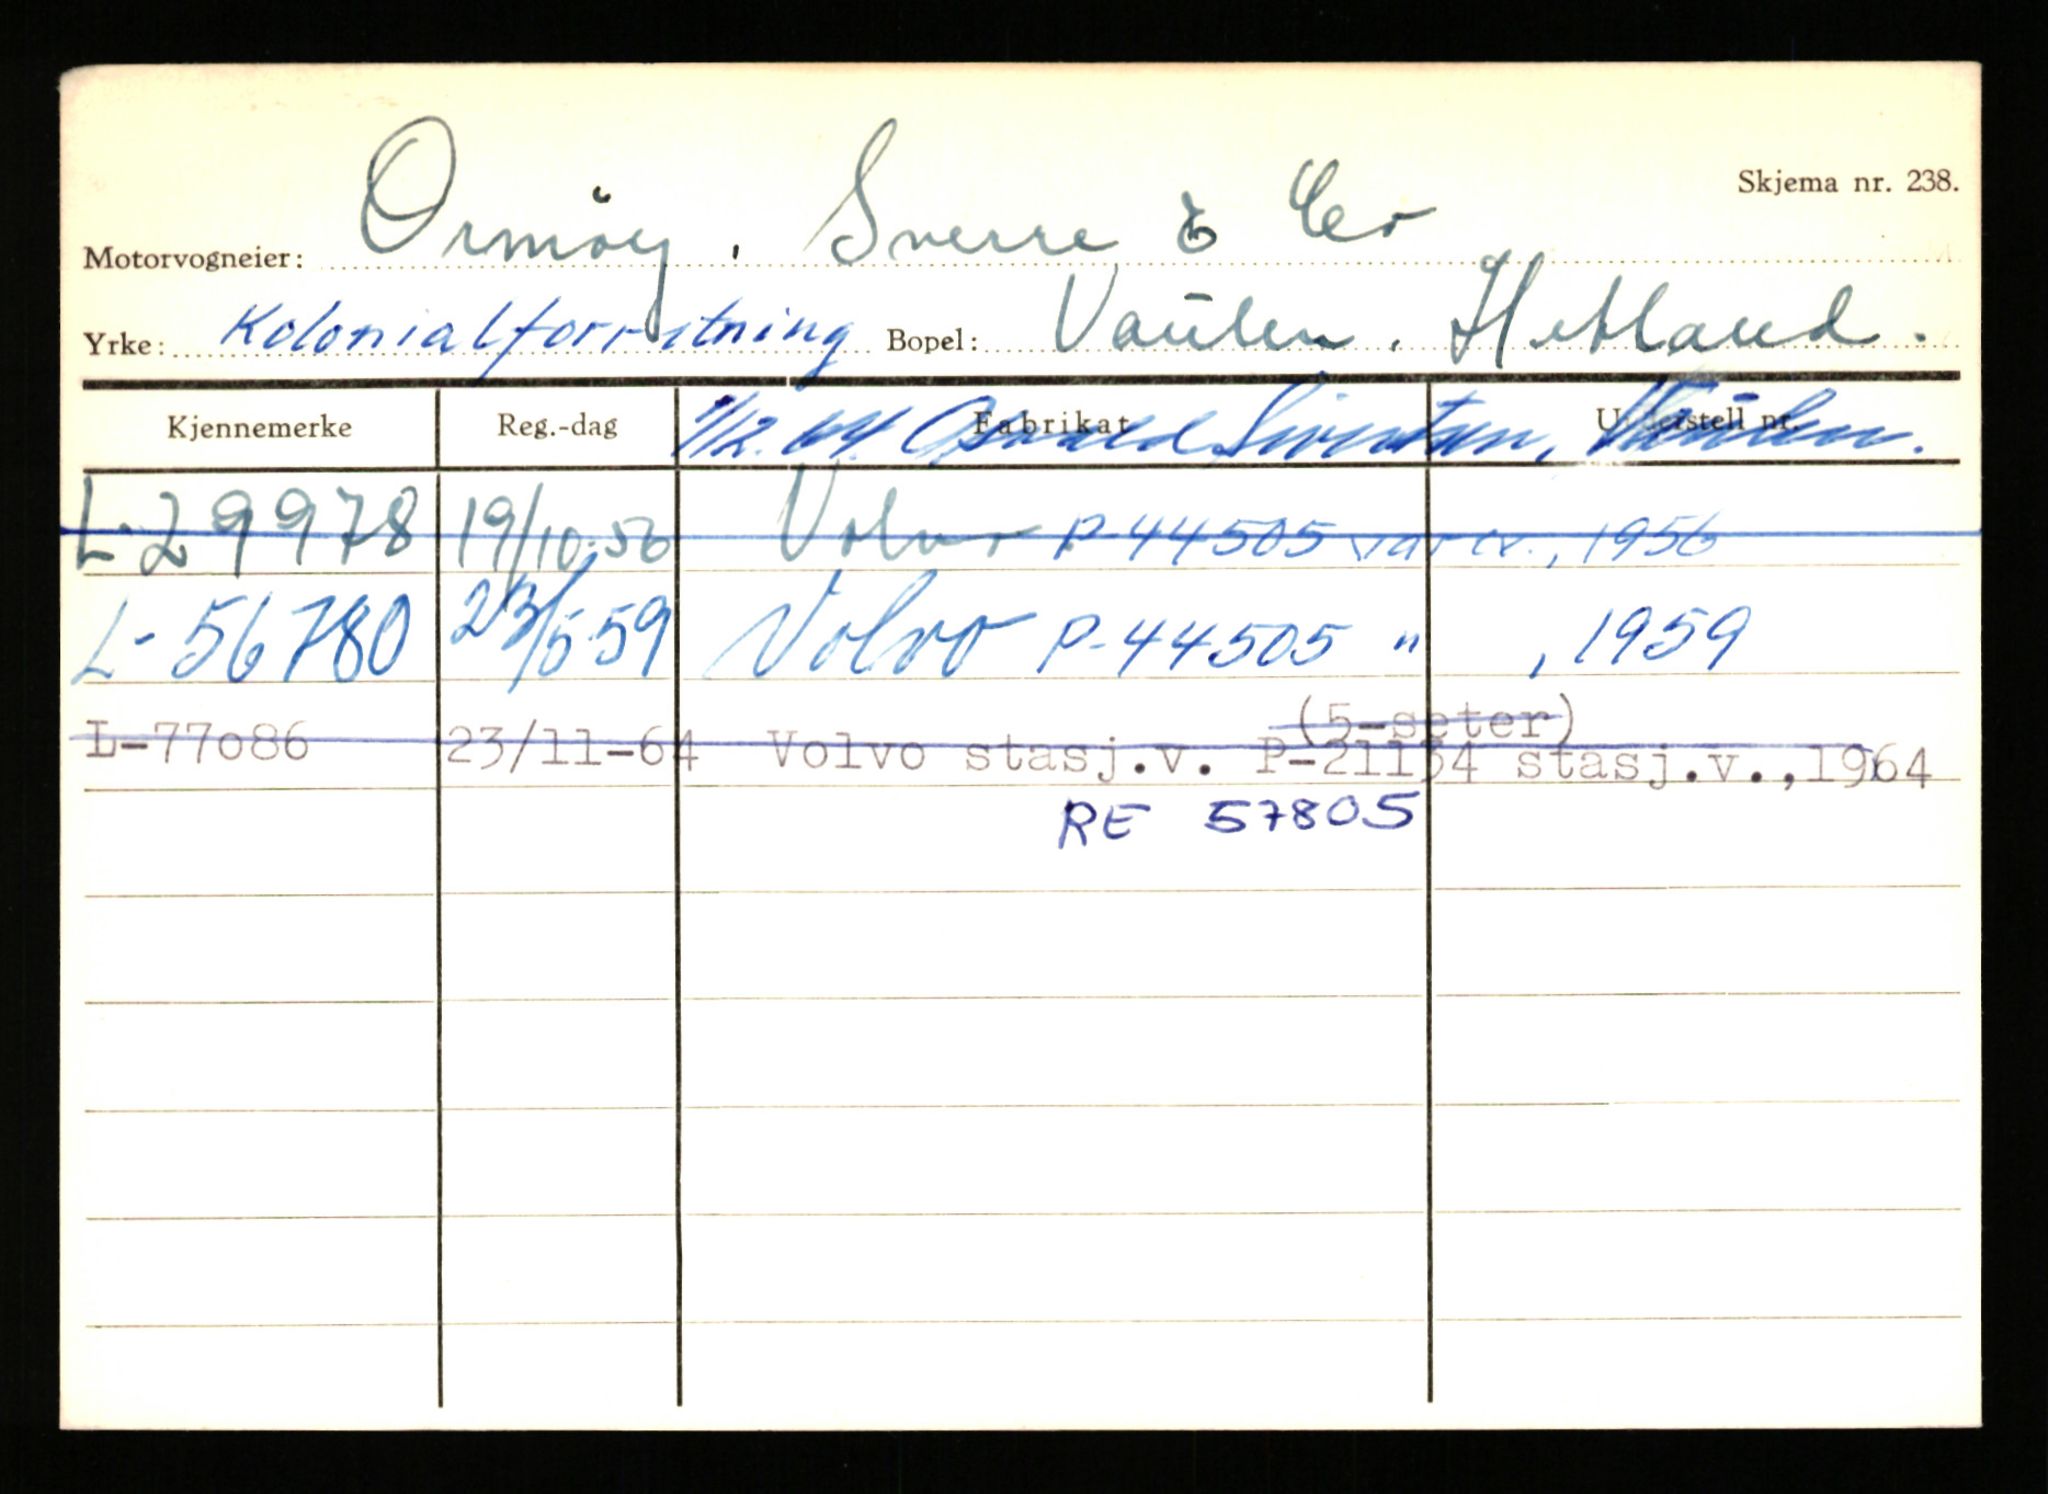 Skjema nr. 238.
Motorvogneier: Ormöy, Sverre & Co
Yrke: Kolonialforretning Bopel: Vaülen, Hetland.
Kjennemerke Reg.-dag Fabrikat Understell nr.
1/12.64. Osvald Sivertsen, Vaülen.
L-29978 19/10.56 Volvo P-44505 varev., 1956
L-56780 23/5.59 Volvo P-44505 " , 1959
(5-seter)
L-77o86 23/11-64 Volvo stasj.v. P-21134 stasj.v.,1964
RE 57805